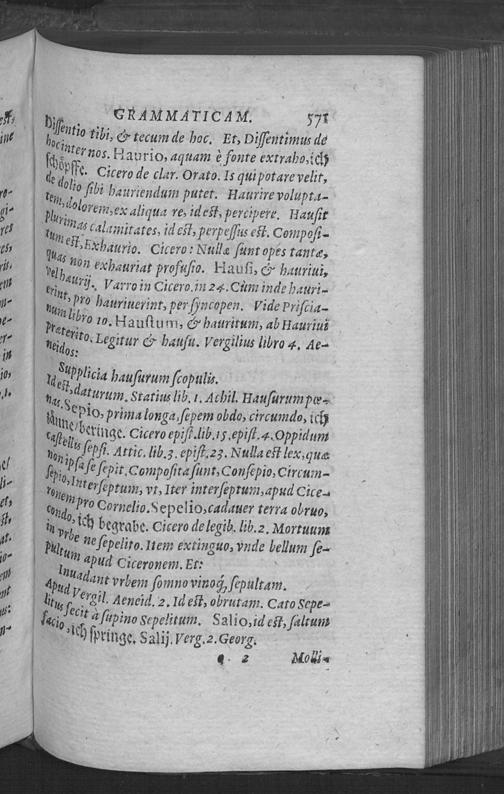 GRAMMATICAM. 571
Dissentio tibi, & tecum de hoc. Et, Dissentimus de
hoc inter nos. Haurio, aquam è fonte extraho, ich
schöpffe. Cicero de clar. Orato. Is qui potare velit,
de dolio sibi hauriendum putet. Haurire volupta-
tem, dolorem, ex aliqua re, id est, percipere. Hausit
plurimas calamitates, id est, perpessus est. Composi-
tum est, Exhaurio. Cicero: Nullæ sunt opes tantæ,
quas non exhauriat profusio. Hausi, & hauriui,
vel haurij. Varro in Cicero. in 24. Cùm inde hauri-
erint, pro hauriuerint, per syncopen. Vide Priscia-
num libro 10. Haustum, & hauritum, ab Hauriui
præterito. Legitur & hausu. Vergilius libro 4. Ae-
neidos:
Supplicia hausurum scopulis.
Id est, daturum. Statius lib. 1. Achil. Hausurum pœ-
nas. Sepio, prima longa, sepem obdo, circumdo, ich
beringe. Cicero epist. lib. 15. epist. 4. Oppidum
castellis sepsi. Attic. lib. 3. epist. 23. Nulla est lex, quæ
non ipsa se sepit. Composita sunt, Consepio, Circum-
sepio, Interseptum, vt, Iter interseptum, apud Cice-
ronem pro Cornelio. Sepelio, cadauer terra obruo,
condo, ich begrabe. Cicero de legib. lib. 2. Mortuum
in vrbe ne sepelito. Item extinguo, vnde bellum se-
pultum apud Ciceronem. Et:
Inuadunt vrbem somno vinoq́; sepultam.
Apud Vergil. Aeneid. 2. Id est, obrutam. Cato Sepe-
litus fecit à supino Sepelitum. Salio, id est, saltum
facio, ich springe. Salij. Verg. 2. Georg.
2 Molli-